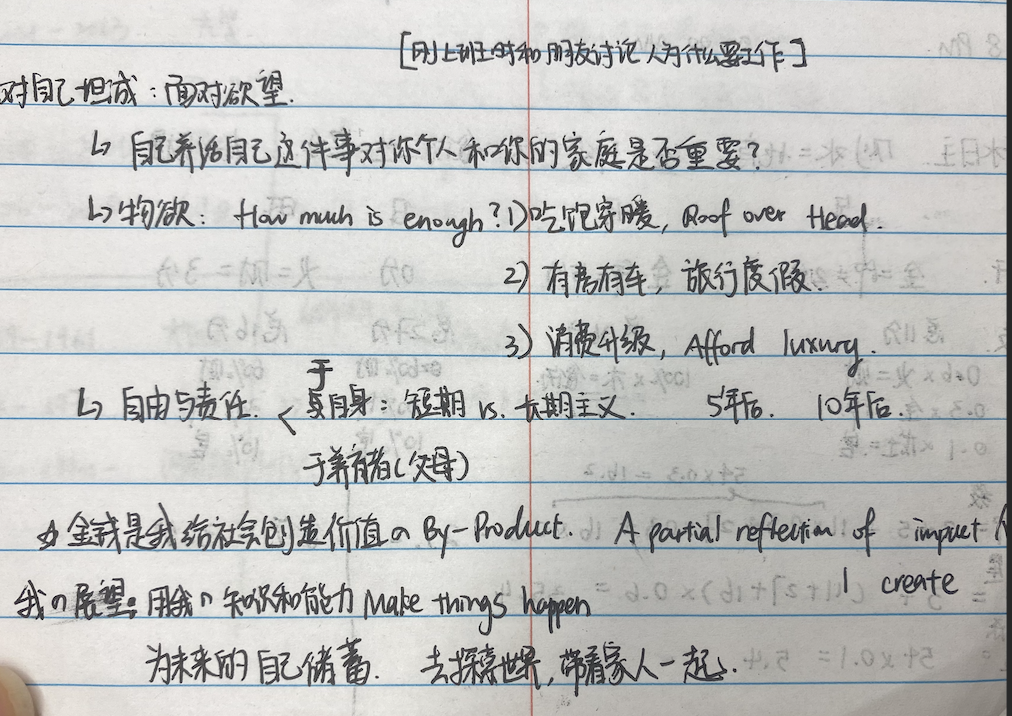 [刚上班时和朋友讨论人为什么要工作]
对自己坦诚：面对欲望.
↳ 自己养活自己这件事对你个人和你的家庭是否重要?
↳ 物欲: How much is enough? 1) 吃饱穿暖, Roof over Head.
2) 有房有车, 旅行度假.
3) 消费升级, Afford luxury.
↳ 自由与责任. < 于自身: 短期 vs. 长期主义. 5年后. 10年后.
于养育者(父母)
金钱是我给社会创造价值の By-Product. A partial reflection of impact
I create
我の展望: 用我の知识和能力 Make things happen
为未来的自己储蓄. 去探索世界, 带着家人一起.